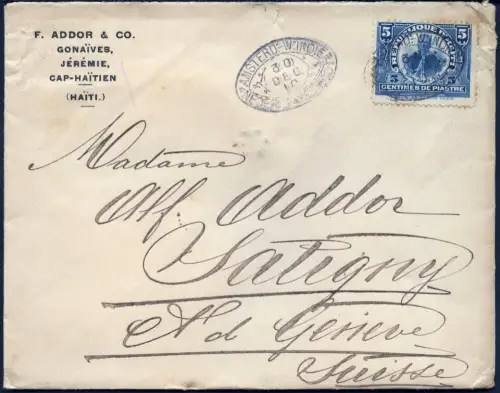 F. ADDOR & CO.
GONAÏVES,
JÉRÉMIE,
CAP-HAÏTIEN
(HAÏTI.)
5 5
RÉPUBLIQUE D'HAITI
5 5
CENTIMES DE PIASTRE
DEC
Madame
Alf. Addor
Satigny
Ct de Genève
Suisse